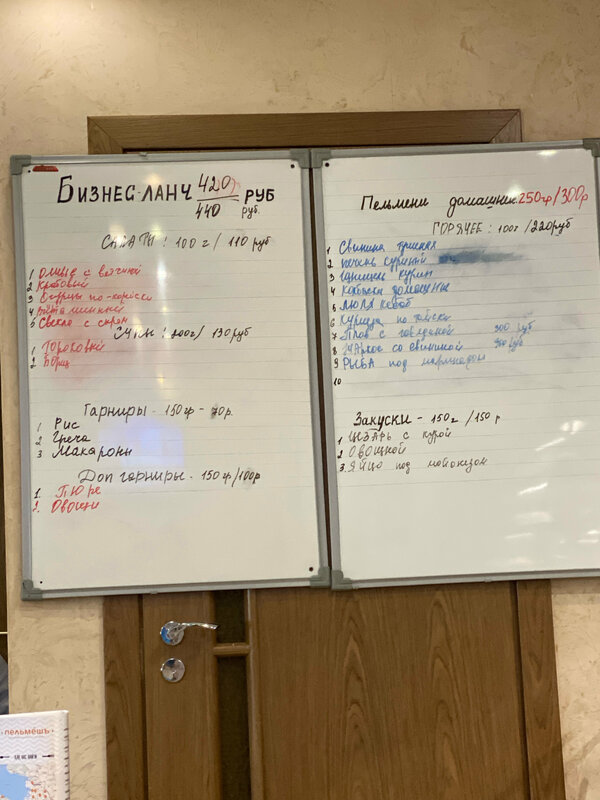 БИЗНЕС-ЛАНЧ 420/440 РУБ руб.
САЛАТЫ: 100 г / 110 руб
1 с ветчиной
2 Крабовый
3 Огурцы по-корейски
4 Витаминный
5 Свекла с сыром
СУПЫ: 200г/ 130 руб
1 Гороховый
2 Борщ
Гарниры - 150гр -
1 Рис
2 Греча
3 Макароны
Доп гарниры - 150гр/100р
1. Пюре
2. Овощи
Пельмени домашние 250гр/300р
ГОРЯЧЕЕ: 100г/220руб
1 Свинина
2 печень куриная
3
4 колбаски домашние
5 люля кебаб
6 Курица по тайски
7 Плов с говядиной 300 руб
8 Жаркое со свининой руб
9 РЫБА под маринадом
10
Закуски - 150г /150 р
1 ЦЕЗАРЬ с курой
2 ОВОЩНОЙ
3. Яйцо под майонезом
ПЕЛЬМЕШЪ